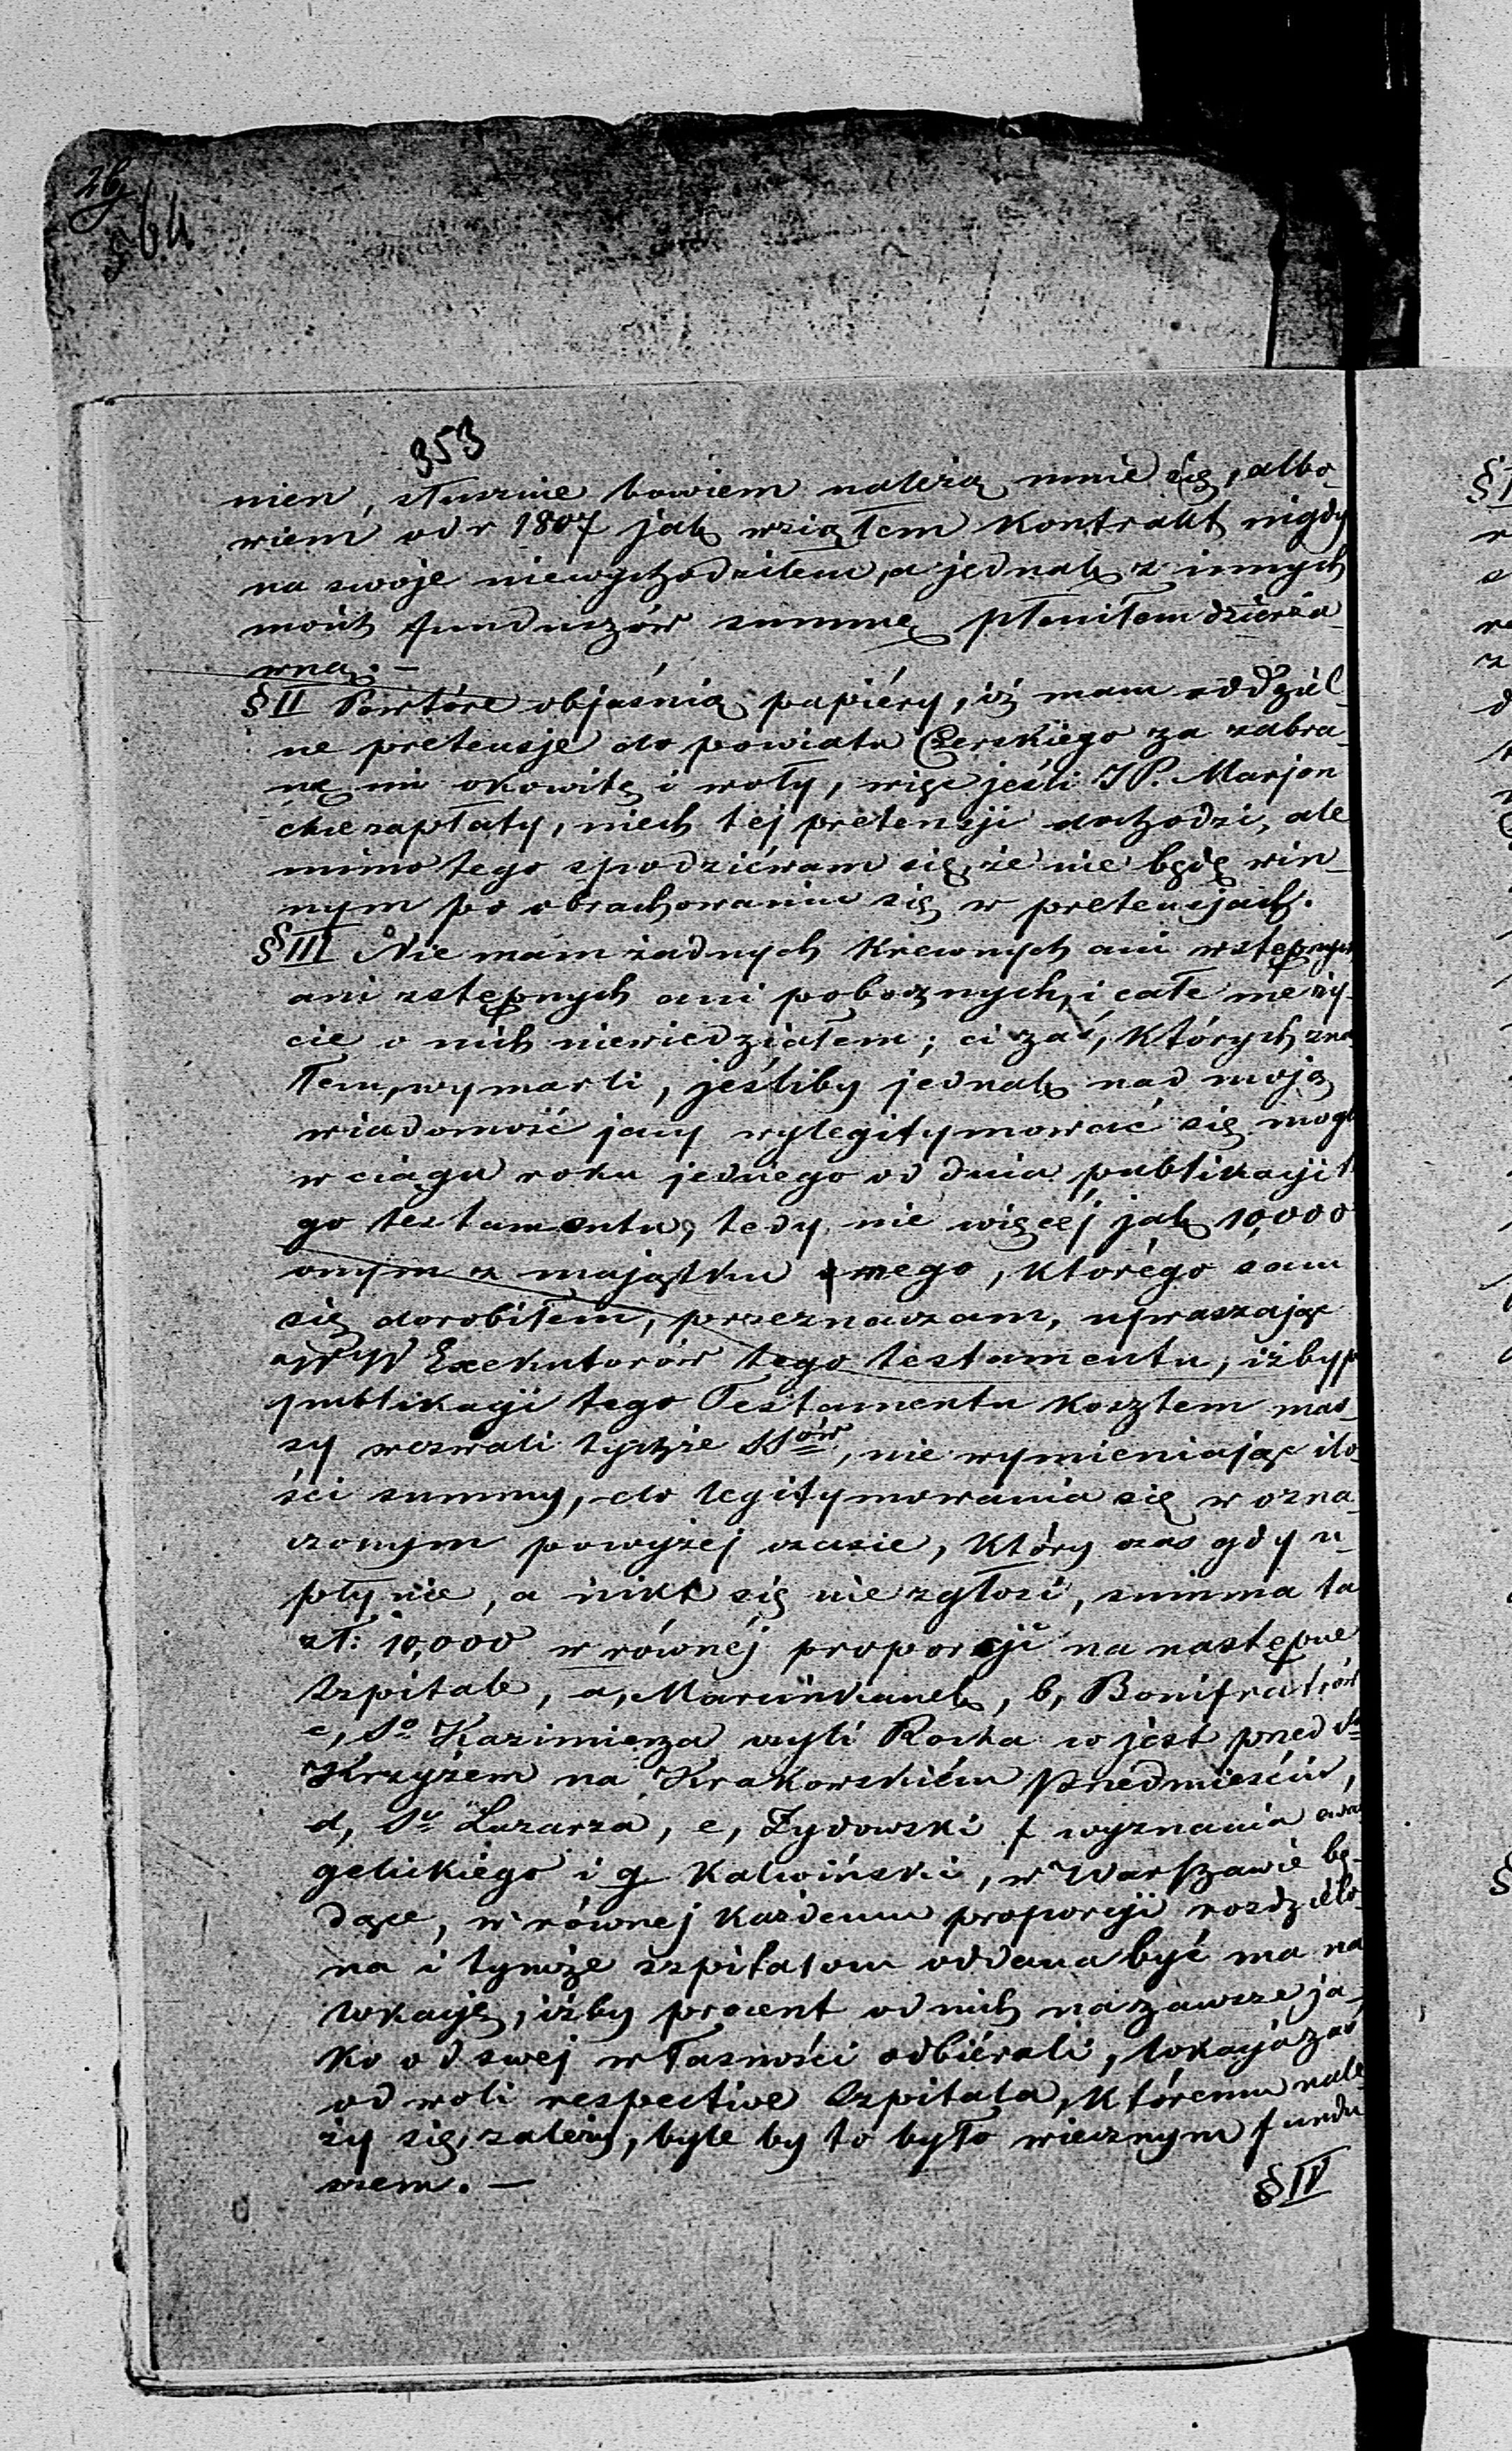 26
564
353
nien, słusznie bowiem należą mnie się, albo-
wiem od r 1807 jak wziąłem Kontrakt nigdy
na swoje niewychodziłem, a jednak z innych
moich funduszów summę płaciłem dzierża-
wną. —
§ II Powtóre objaśnią papiéry, iż mam oddziel-
ne pretensje do powiatu Czerskiego za zabra-
ną mi okowitę i woły, więc jeśli JP. Marjon
chce zapłaty, niech tej pretensji dochodzi, ale
mimo tego spodziéwam się, że nie będę win-
nym po obrachowaniu się w pretensjach.
§ III Nie mam żadnych Krewnych ani wstępnych
ani zstępnych ani pobocznych, i całe me ży-
cie o nich niewiedziałem; ci zaś, Których zna-
łem, wymarli, jeśliby jednak nad moją
wiadomość jacy wylegitymować się mogli
w ciągu roku jednego od dnia publikacji te
go testamentu, tedy nie więcej jak 10,000
onym z majątku mego, którégo sam
się dorobiłem, przeznaczam, upraszając
WW Exekutorów tego testamentu, iżby p
publikacji tego Testamentu Kosztem mas-
sy wezwali tychże SSów, nie wymieniając ilo-
ści summy, do legitymowania się w ozna-
czonym powyżej czasie, Który czas gdy u-
płynie, a nikt się nie zgłosi, summa ta
zł: 10,000 w równéj proporcji na następne
Szpitale, a, Marcinkanek, b, Bonifratrów
c, So Kazimierza czyli Rocha co jest przed Sm
Krzyżem na Krakowskiém Przedmieściu,
d, So Łazarza, e, Żydowski f wyznania ewan
gelickiego i g Kalwiński, w Warszawie bę-
dące, w równej Każdemu proporcji rozdzielo-
na i tymże szpitalom oddana być ma na
lokacje, iżby procent od nich na zawsze ja-
ko od swej własności odbiérali, lokacja zaś
od woli respective Szpitala, Któremu nale-
ży się, zależy, byle by to było wiecznym fundu
szem. —
§ IV